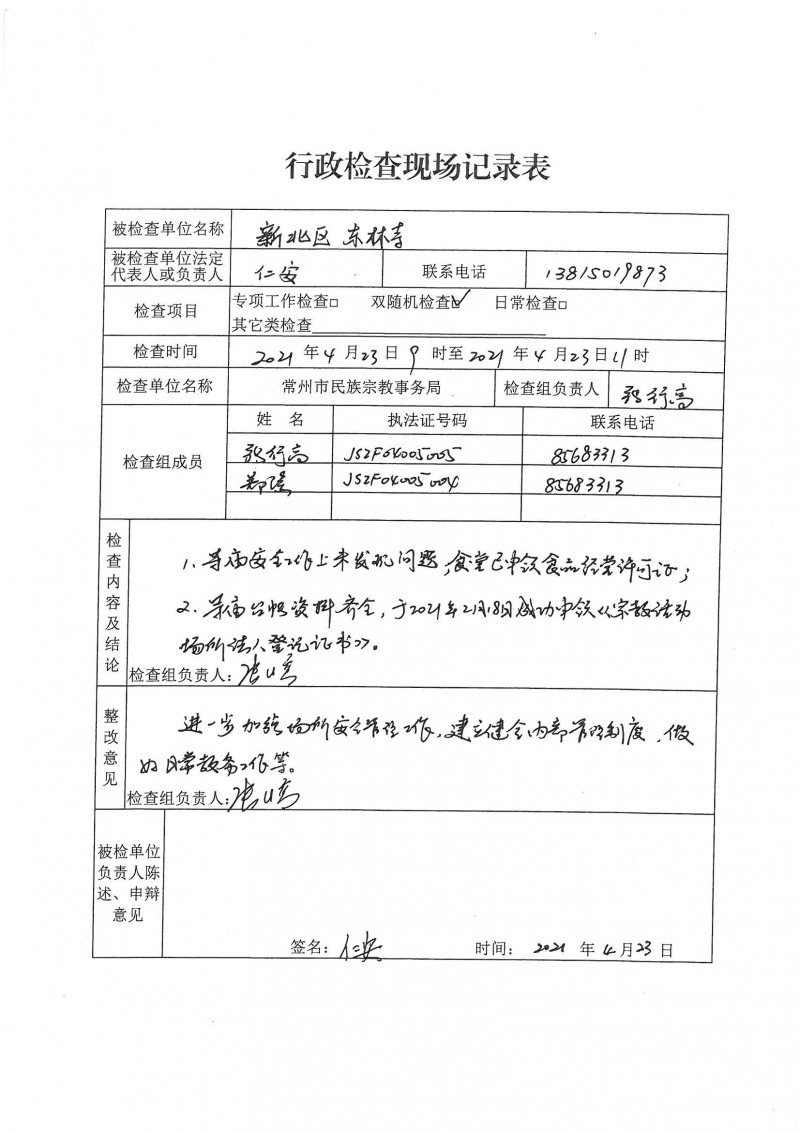 行政检查现场记录表
被检查单位名称 新北区 东林寺
被检查单位法定
代表人或负责人 仁安 联系电话 13815019873
检查项目 专项工作检查□ 双随机检查☑ 日常检查□
其它类检查
检查时间 2021 年 4 月 23 日 9 时至 2021 年 4 月 23 日 11 时
检查单位名称 常州市民族宗教事务局 检查组负责人 张行高
检查组成员 姓 名 执法证号码 联系电话
张行高 JSZF04005005 85683313
郑隆 JSZF04005004 85683313
检查内容及结论
1、寺庙安全工作上未发现问题,食堂已申领食品经营许可证;
2、寺庙台帐资料齐全,于2021年2月18日成功申领《宗教活动
场所法人登记证书》。
检查组负责人: 张行高
整改意见
进一步加强场所安全管理工作,建立健全内部管理制度,做
好日常教务工作等。
检查组负责人: 张行高
被检单位
负责人陈
述、申辩
意见
签名: 仁安 时间: 2021 年 4 月 23 日